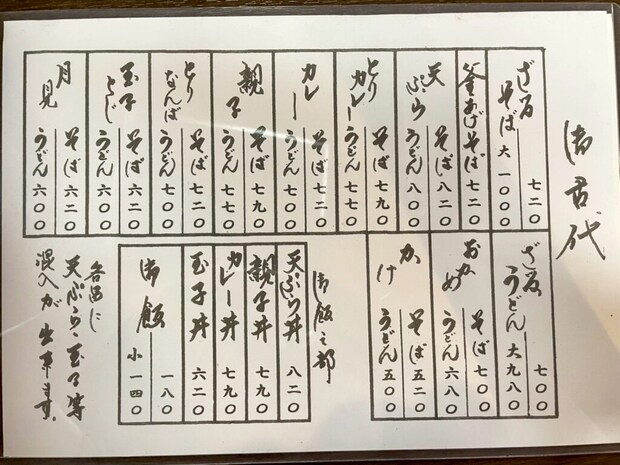 御品代
七二〇
ざるそば 大一〇〇〇
釜あげそば 七二〇
天ぷら
そば 八二〇
うどん 八〇〇
とりカレー
そば 七九〇
うどん 七七〇
カレー
そば 七二〇
うどん 七〇〇
親子
そば 七九〇
うどん 七七〇
とりなんば
そば 七二〇
うどん 七〇〇
玉子とじ
そば 六二〇
うどん 六〇〇
月見
そば 六二〇
うどん 六〇〇
七〇〇
ざるうどん 大九八〇
おかめ
そば 七〇〇
うどん 六八〇
かけ
そば 五二〇
うどん 五〇〇
御飯之部
天ぷら丼 八二〇
親子丼 七九〇
カレー丼 七九〇
玉子丼 六二〇
御飯
一八〇
小 一四〇
各品に
天ぷら、玉子等
混入が出来ます。